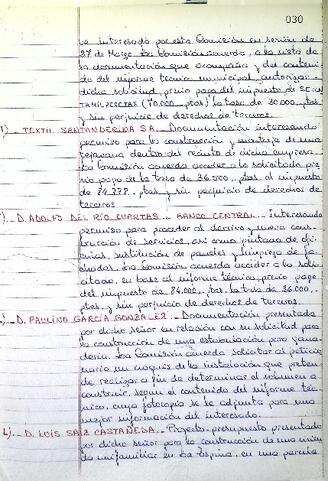 030
lo interesado por esta Comisión en sesión de
27 de Marzo. La Comisión acuerda, a la vista de
la documentación que acompaña y del conteni
do del informe tecnico municipal, autorizar
dicha solicitud, previo pago del impuesto de
MIL PESETAS (70.000,- ptas) la tasa de 30.000,- ptas
y sin perjuicio de derechos de terceros.
TEXTIL SANTANDERINA S.A.- Documentación interesando
permiso para la construcción y montaje de una
tejavana dentro del recinto de dicha empresa.
La Comisión acuerda acceder a lo solicitado pre
vio pago de la tasa de 36.500,- ptas, el impuesto
de ptas y sin perjuicio de derechos de
terceros
D. ADOLFO DEL RÍO CUARTAS - BANCO CENTRAL.- interesando
permiso para proceder al derribo y nueva cons-
trucción de servicios, asi como pintado de ofi-
cinas, sustitución de paneles y limpieza de fa-
chadas. La Comisión acuerda acceder a lo soli-
citado, en base al informe técnico, previo pago
del impuesto de 74.000,- ptas. la tasa de 36.000,-
ptas y sin perjuicio de derechos de terceros.
D. PAULINO GARCIA GONZALEZ.- Documentación presentada
por dicho señor en relación con su solicitud para
la construcción de una estabulación para gana-
dería. La Comisión acuerda solicitar al peticio
nario un croquis de la instalación que preten
de realizar a fin de determinar el volumen a
construir, según el contenido del informe téc-
nico, cuya fotocopia se le adjunta para una
mejor información del interesado.
4).- D. LUIS SAIZ CASTAÑEDA.- Proyecto-presupuesto presentado
por dicho señor para la construcción de una vivien
da unifamiliar en La Espina, en una parcela